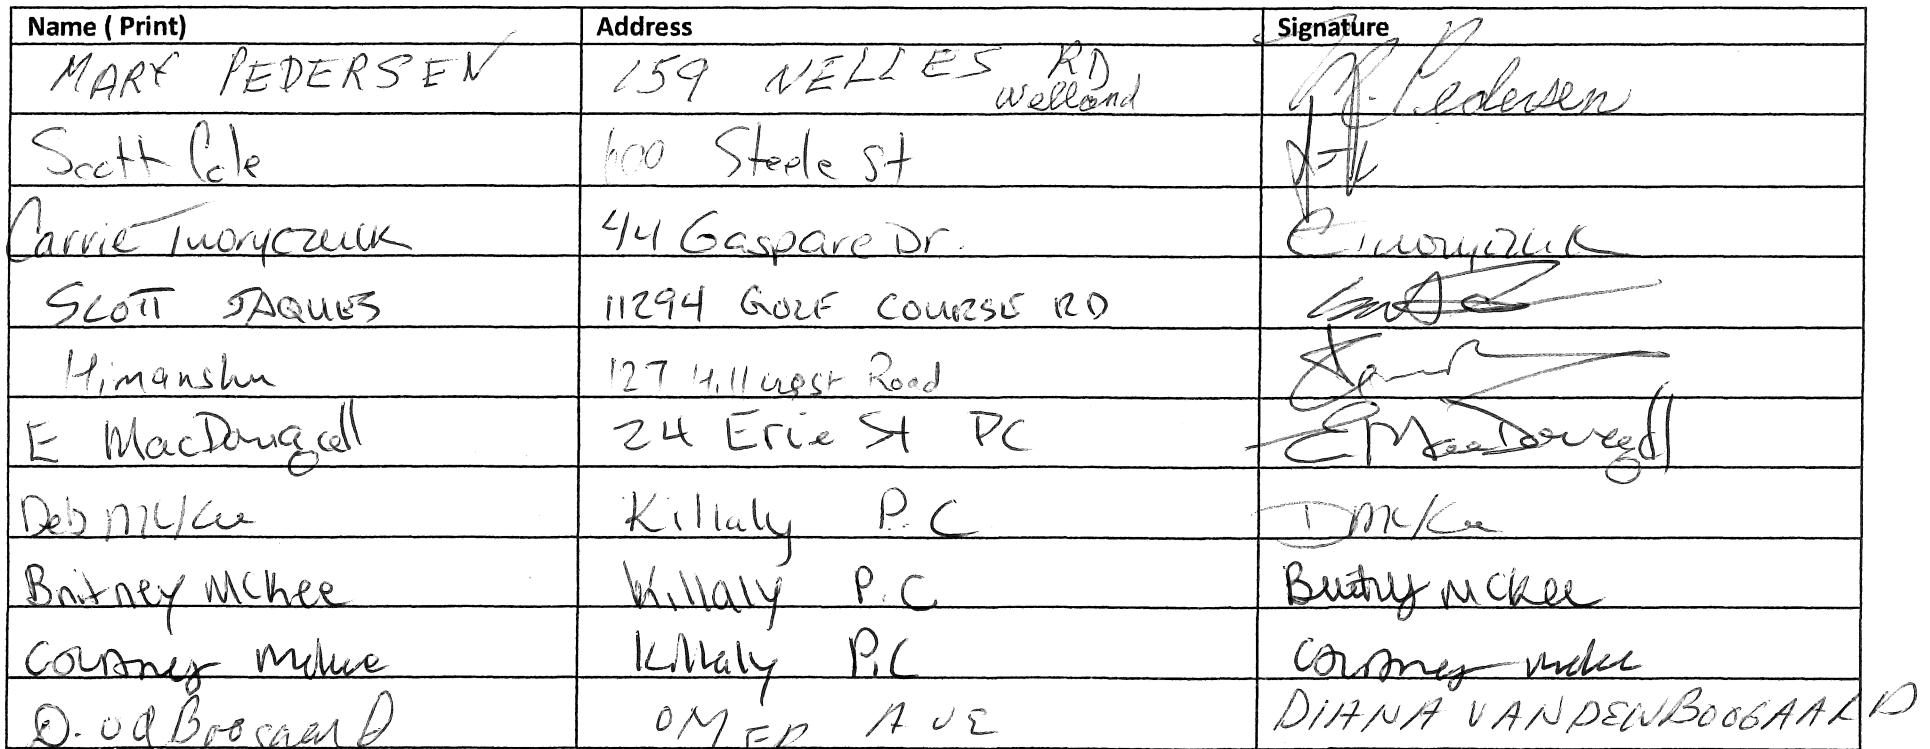 Name ( Print) Address Signature
MARY PEDERSEN 159 NELLES RD Welland Pedersen
Scott Cole 600 Steele St
Carrie Tworyczuk 44 Gaspare Dr. C Tworyczuk
SCOTT JAQUES 11294 GOLF COURSE RD
Himanshu 127 Hillcrest Road
E MacDougall 24 Erie St PC E MacDougall
Deb McKee Killaly P.C D McKee
Britney McKee Killaly P.C Britney McKee
Courtney McKee Killaly P.C Courtney McKee
D. Vd Boogaard OMER AVE DIANA VANDENBOOGAARD